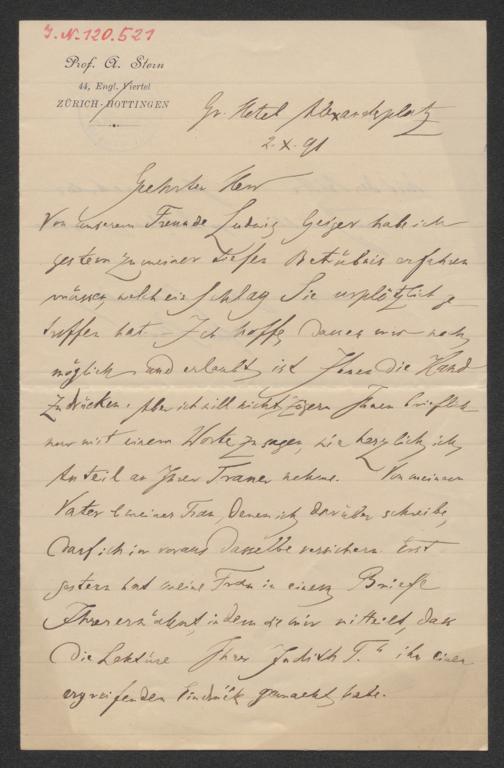 J. N. 120.521
Prof. A. Stern
44, Engl. Viertel
ZÜRICH-HOTTINGEN
Gr. Hotel Alexanderplatz
2. X. 91
Geehrter Herr
Von unserem Freunde Ludwig Geiger habe ich
gestern zu meiner tiefen Betrübnis erfahren
müssen, welch ein Schlag Sie urplötzlich ge
troffen hat. Ich hoffe, dass es mir noch
möglich und erlaubt ist Ihnen die Hand
zu drücken. Aber ich will nicht zögern Ihnen brieflich
nur mit einem Worte zu sagen, wie herzlich ich
Anteil an Ihrer Trauer nehme. Von meinem
Vater & meiner Frau, denen ich darüber schreibe,
darf ich im voraus dasselbe versichern. Erst
gestern hat meine Frau in einem Briefe
Ihrer erwähnt, indem sie mir mitteilt, dass
die Lektüre Ihrer Judith T." ihr einen
ergreifenden Eindruck gemacht habe.